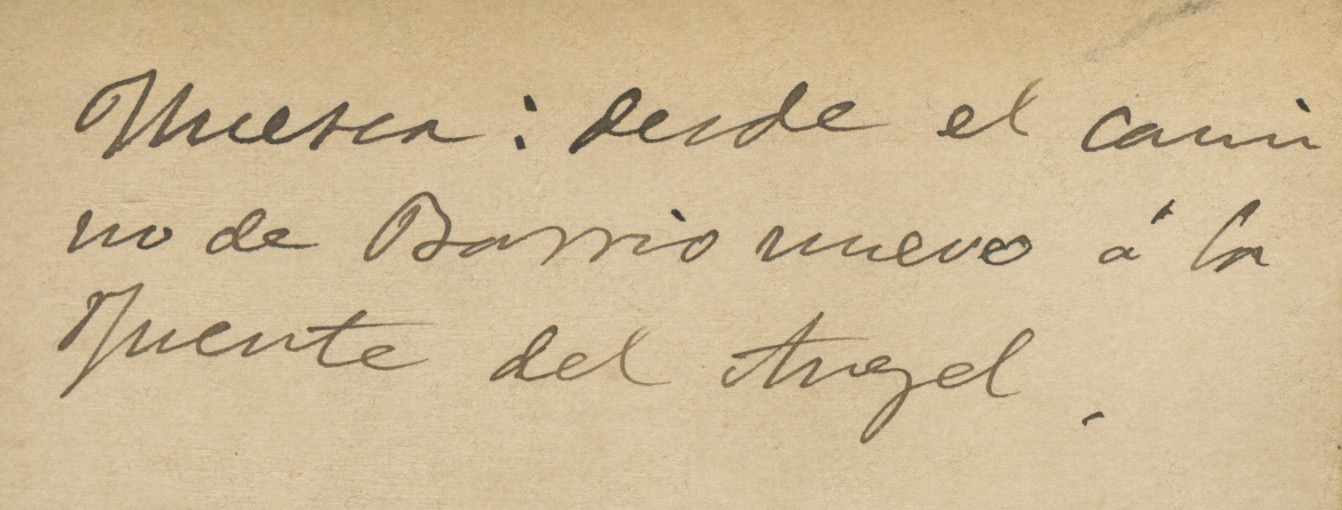 Huesca: desde el cami
no de Barrio nuevo á la
Fuente del Angel.